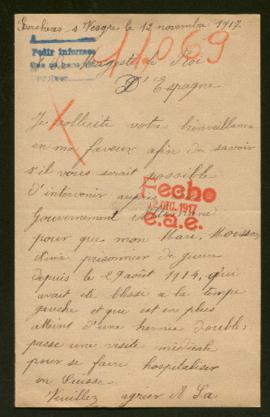 Eschères s Vesgre le 12 novembre 1917.
Pedir informes
11069
Majesté le Roi
D'Espagne
Je sollicite votre bienveillance
en ma faveur afin de savoir
s'il vous serait possible
d'intervenir auprès
Fecho
DIC. 1917
e.a.e.
Gouvernement
pour que mon Mari,
prisonnier de guerre
depuis le 29 août 1914, qui
avait été blessé a la tempe
gauche et que est en plus
atteint d'une hernie double,
passe une visite médicale
pour se faire hospitaliser
en Suisse.
Veuillez agréer A Sa